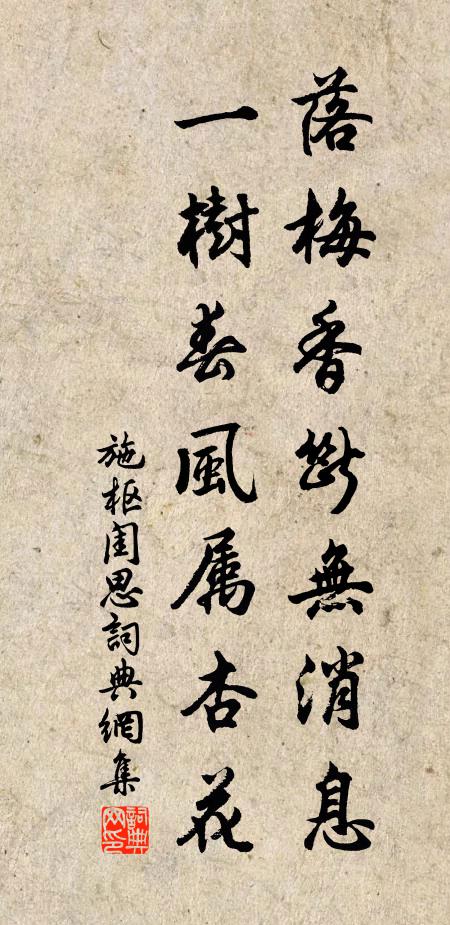 落梅香斷無消息
一樹春風属杏花
施枢闺思詞典網集
詞典网印